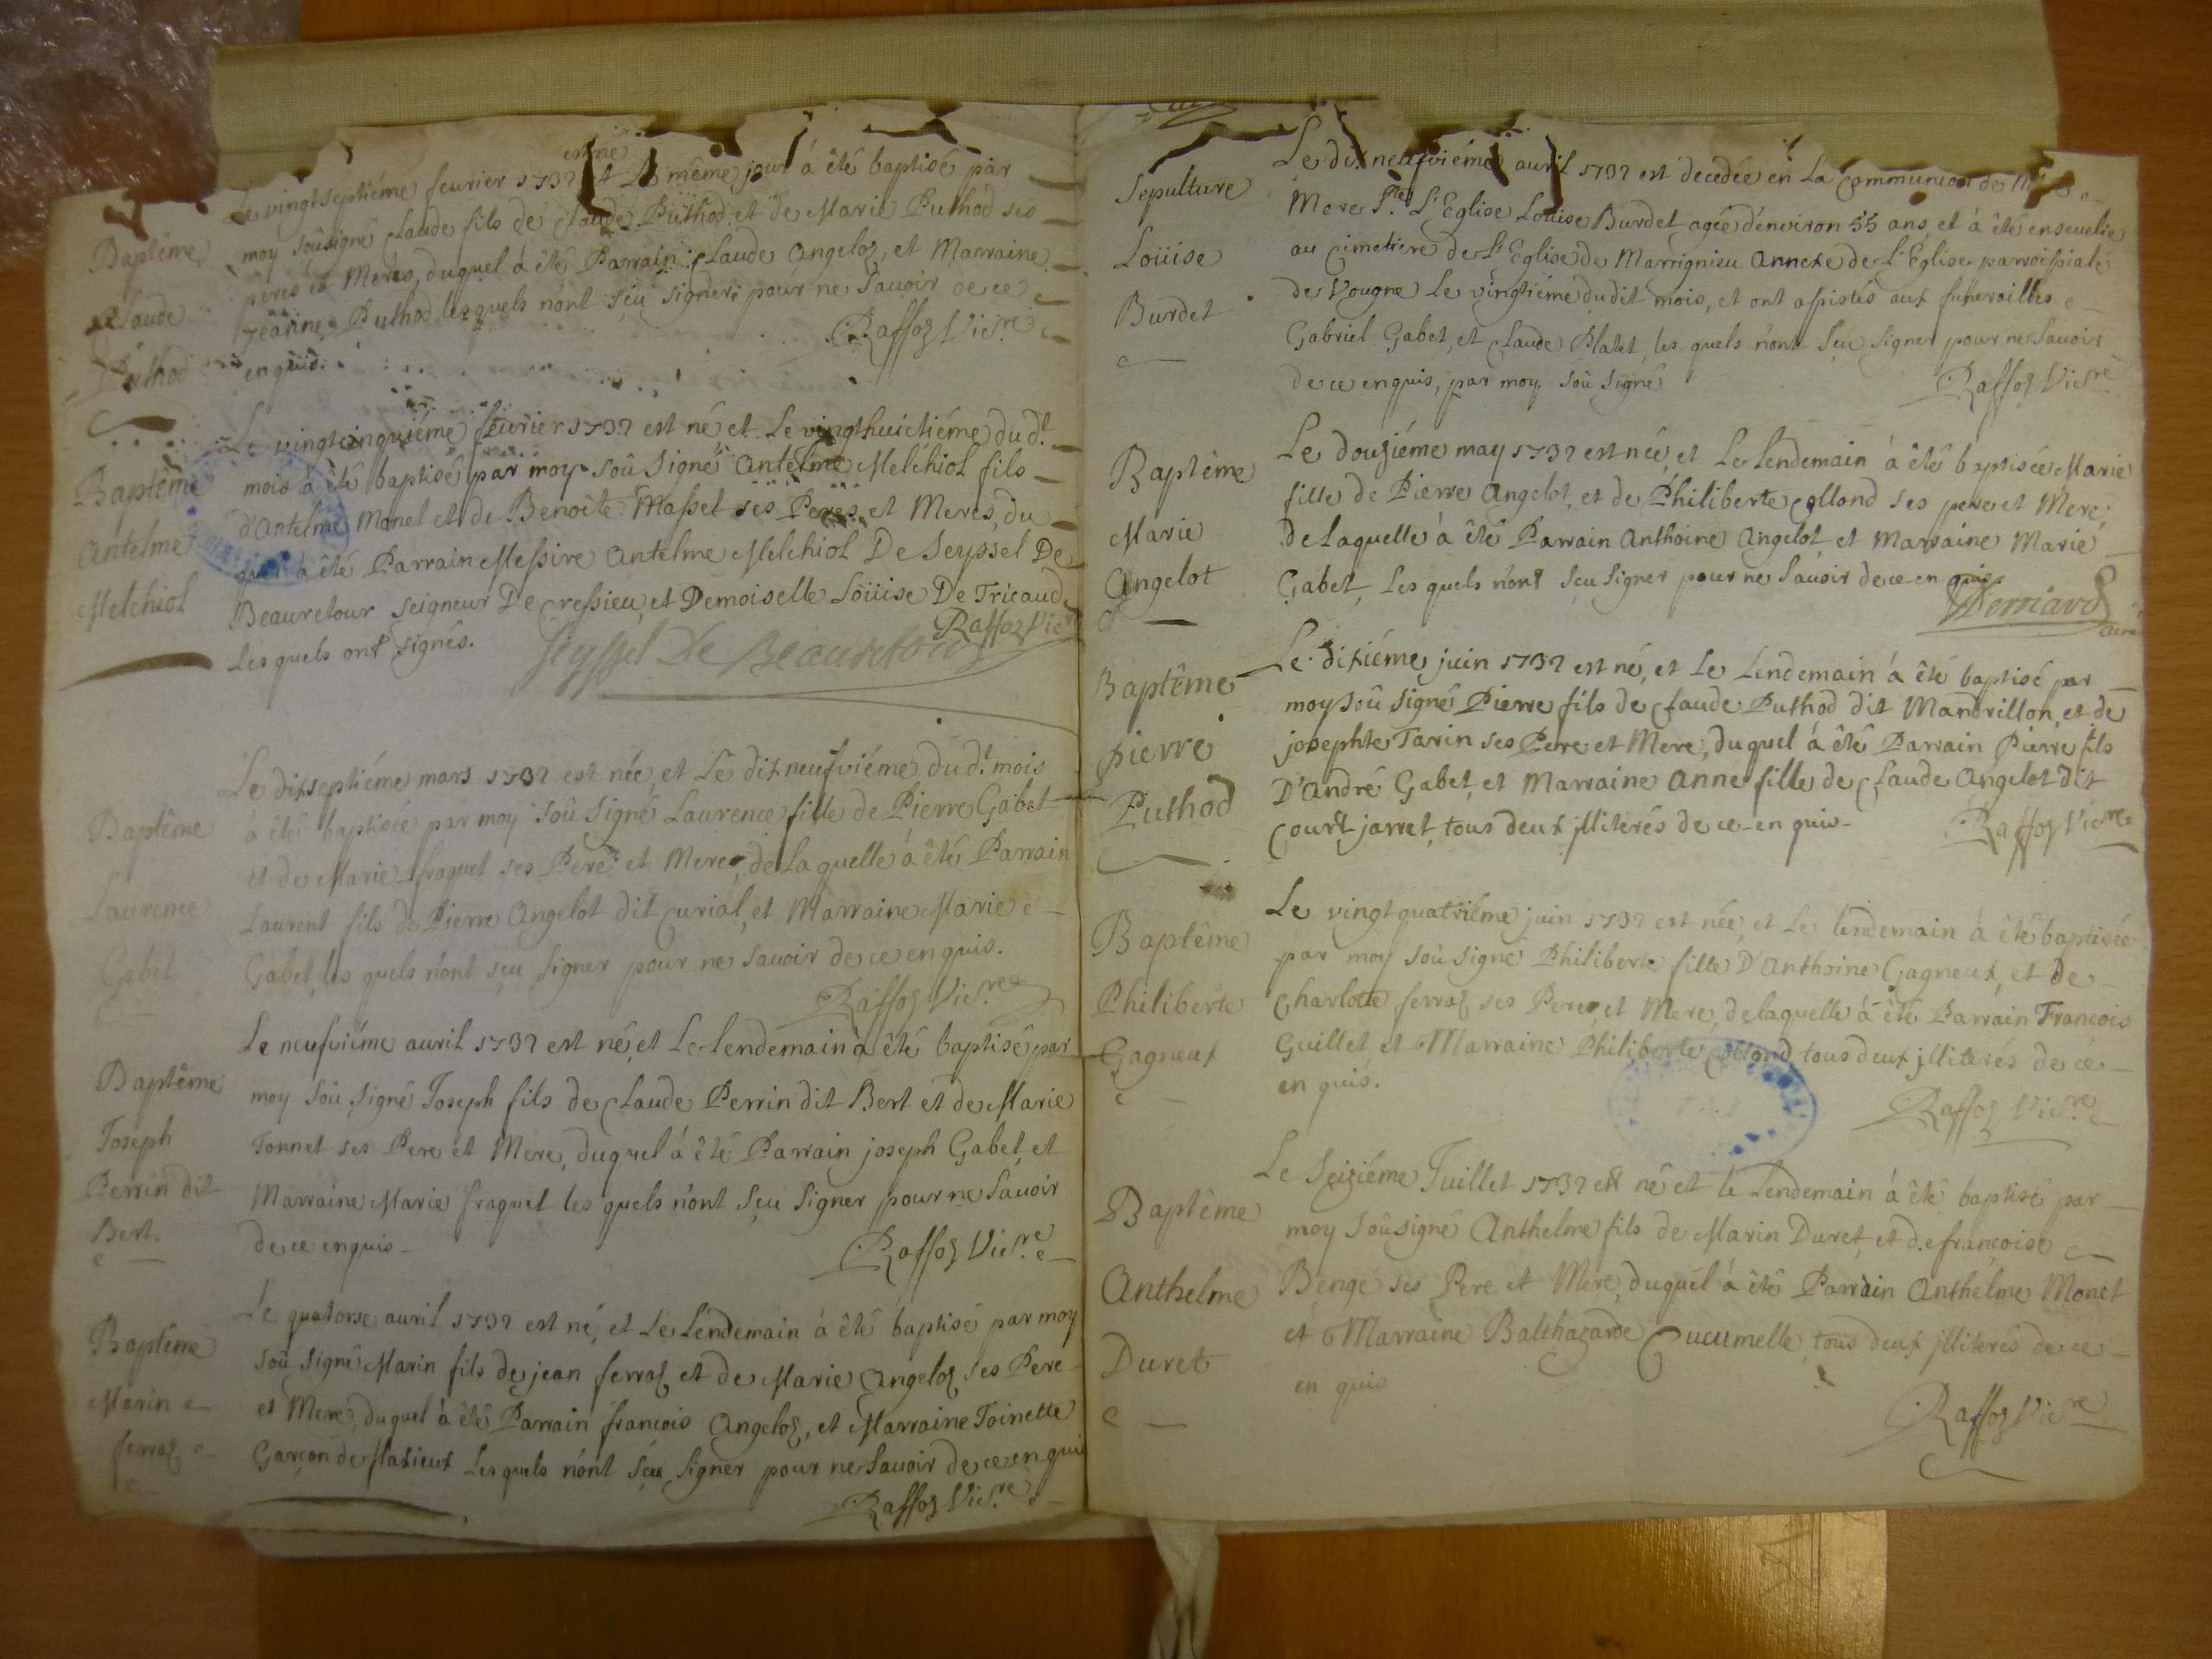 Baptême
Claude
Puthod
est né
Le vingtseptiéme feurier 1732 et le même jour à êté baptisé par
moy soûsigné Claude fils de Claude Puthod et de Marie Puthod ses
peres et Meres, duquel à êté Parrain Claude Angeloz, et Marraine
Jeanne Puthod lesquels n'ont sçu signer pour ne sauoir de ce
enquis.
Raffoz Vicre
Baptême
Antelme
Melchiol
Le vingtcinquiéme feurier 1732 est né, et Le vingthuictiéme du dt
mois à êté baptisé par moy soû Signé Antelme Melchiol fils
d'Antelme Monet et de Benoîte Masset ses Peres et Meres, du
quel à êté Parrain Messire Antelme Melchiol De Seyssel De
Beauretour Seigneur De Cressieu, et Demoiselle Loüise De Tricaud
Les quels ont signés.
Raffoz Vic
Seyssel De Beauretour
Baptême
Laurence
Gabet
Le dixseptiéme mars 1732 est née, et Le dixneufviéme du dt mois
à êté baptisée par moy soû Signé Laurence fille de Pierre Gabet
et de Marie fraquet ses Pere et Mere, de laquelle à êté Parrain
Laurent fils de Pierre Angelot dit Curial, et Marraine Marie
Gabet, les quels n'ont sçu signer pour ne sauoir de ce enquis.
Raffoz Vicre
Baptême
Joseph
Perrin dit
Bert.
Le neufviéme auril 1732 est né, et Le Lendemain à êté baptisé par
moy Soû Signé Joseph fils de Claude Perrin dit Bert et de Marie
Tonnet ses Pere et Mere, duquel à êté Parrain joseph Gabet, et
Marraine Marie fraquet les quels n'ont sçu Signer pour ne Sauoir
de ce enquis
Raffoz Vicre
Baptême
Marin
ferraz
Le quatorse auril 1732 est né, et Le Lendemain à êté baptisé par moy
soû signé Marin fils de jean ferraz et de Marie Angeloz ses Pere
et Mere, duquel à êté Parrain francois Angeloz, et Marraine Toinette
Garçon de Flaxieux Lesquels n'ont sçu Signer pour ne Sauoir de ce enquis
Raffoz Vicre
Sepulture
Loüise
Burdet
Le dixneufviéme auril 1732 est decedée en La Communion de
Mere Ste L'Eglise Loüise Burdet agée d'enuiron 55 ans, et à êté enseuelie
au Cimetiere de L'Eglise de Marrignieu Annexe de L'Eglise parroissiale
de Vougne Le vingtiéme dudit mois, et ont assistés aux funerailles
Gabriel Gabet, et Claude Platet, les quels n'ont Sçu signer pour ne Sauoir
de ce enquis, par moy Soû Signé
Raffoz Vicre
Baptême
Marie
Angelot
Le dousiéme may 1732 est née, et Le Lendemain à êté baptisée Marie
fille de Pierre Angelot, et de Philiberte Collond ses pere et Mere,
de Laquelle à êté Parrain Anthoine Angelot et Marraine Marie
Gabet, Les quels n'ont sçu signer pour ne Sauoir de ce en quis
Baptême
Pierre
Puthod
Le dixiéme juin 1732 est né, et Le Lendemain à êté baptisé par
moy Soû Signé Pierre fils de Claude Puthod dit Mandrillon, et de
josephte Tarin ses Pere et Mere, duquel à êté Parrain Pierre fils
D'André Gabet, et Marraine Anne fille de Claude Angelot dit
Court jarret, tous deux jlliterés de ce en quis
Raffoz Vicre
Baptême
Philiberte
Gagneux
Le vingtquatriéme juin 1732 est née, et Le lendemain à êté baptisée
par moy soû signé Philiberte fille D'Anthoine Gagneux, et de
Charlotte ferraz ses Pere et Mere, de laquelle à êté Parrain Francois
Guillet et Marraine Philiberte Collond tous deux jlliterés de ce
en quis.
Raffoz Vicre
Baptême
Anthelme
Duret
Le Seiziéme Juillet 1732 est né et le Lendemain à êté baptisé par
moy Soûsigné Anthelme fils de Marin Duret, et de françoise
Benge ses Pere et Mere, duquel à êté Parrain Anthelme Monet
et Marraine Balthazarde Cucumelle, tous deux jlliterés de ce
en quis
Raffoz Vicre